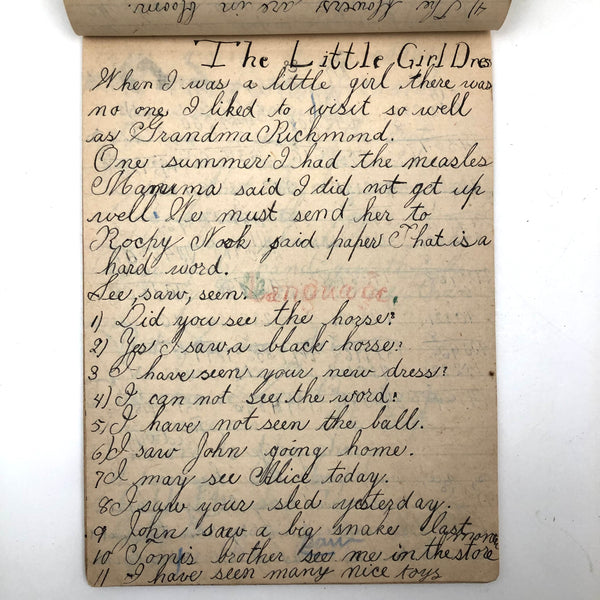 4) The flowers are in bloom.
The Little Girl Dress
When I was a little girl there was
no one I liked to wisit so well
as Grandma Richmond.
One summer I had the measles
Mamma said I did not get up
well We must send her to
Rocpy Nook said paper That is a
hard word.
See, saw, seen.
Language.
1) Did you see the horse?
2) Yes I saw a black horse?
3 I have seen your new dress?
4) I can not see the word?
5, I have not seen the ball.
6) I saw John going home.
7 I may see Alice today.
8 I saw your sled yesterday.
9 John saw a big snake last
monday
saw
10 Tomis brother see me in the store
11 I have seen many nice toys